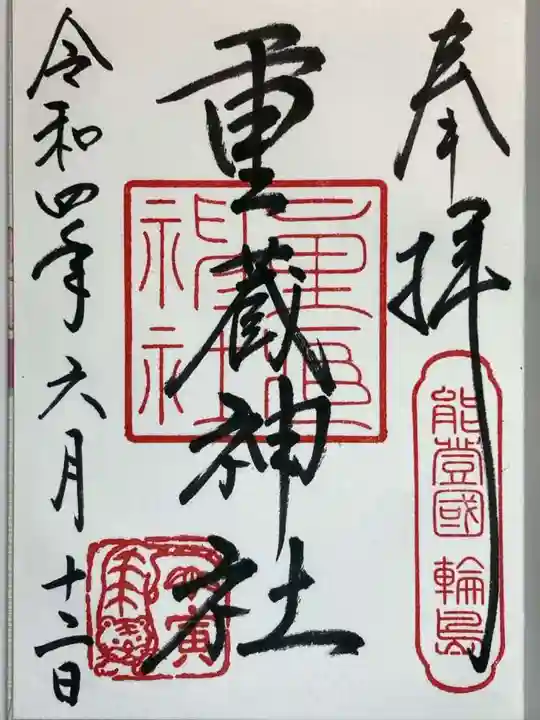 奉拝
能登國 輪島
重蔵神社
令和四年六月十二日